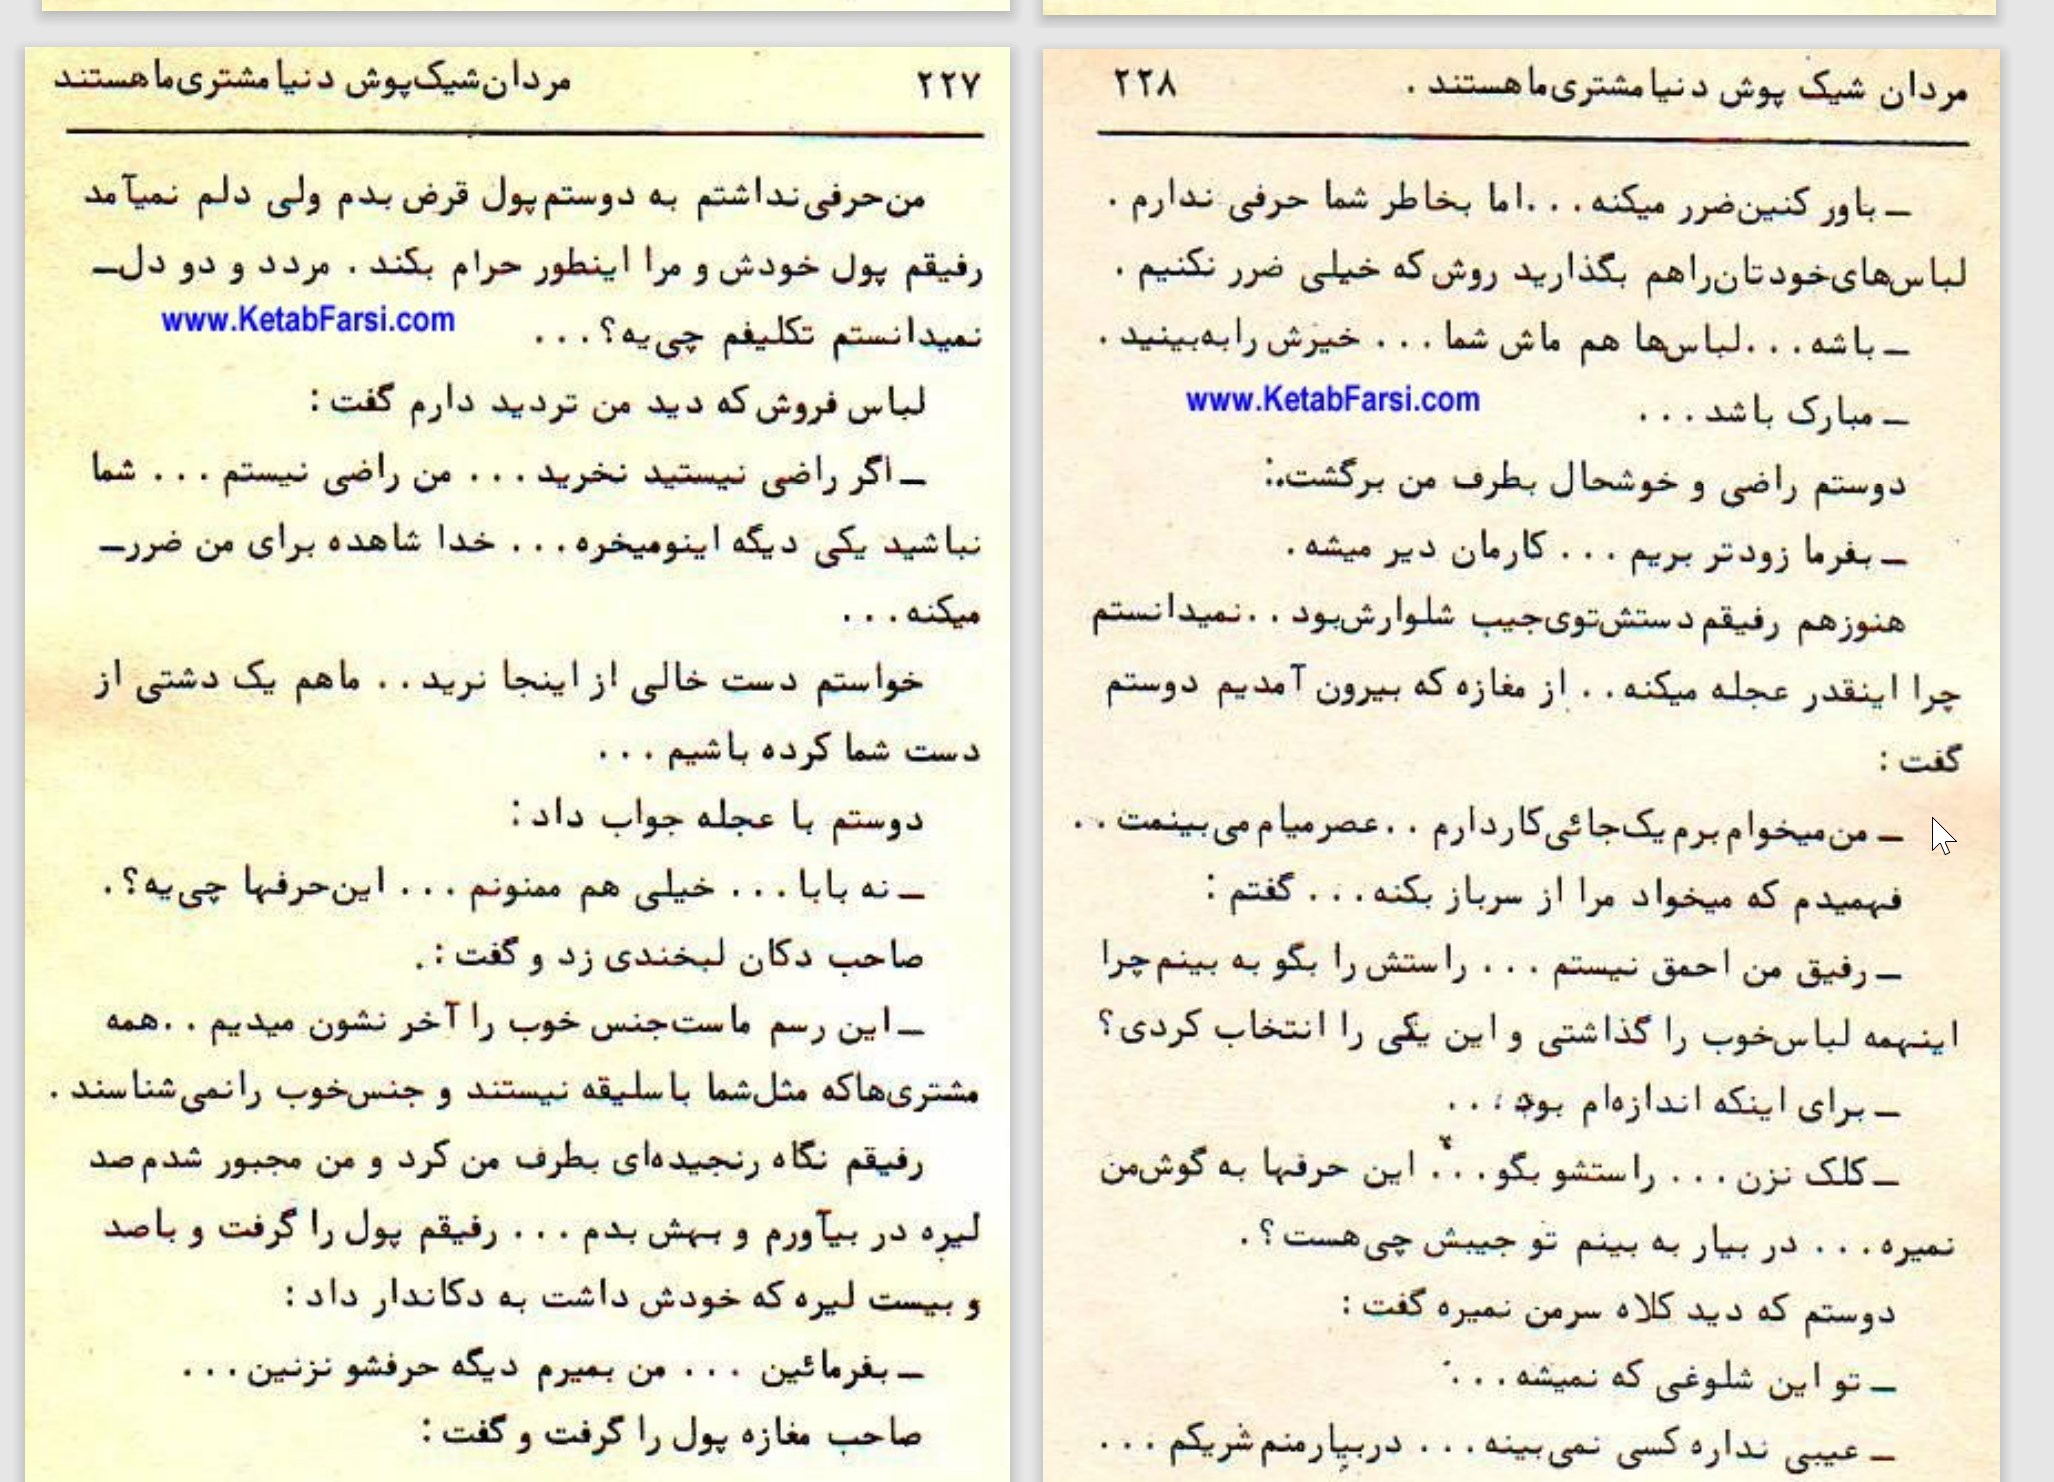 مردان شیک‌پوش دنیا مشتری‌ما هستند ۲۲۷
من‌حرفی‌نداشتم به دوستم‌پول قرض بدم ولی دلم نمیآمد
رفیقم پول خودش و مرا اینطور حرام بکند . مردد و دو دل‌ــ
نمیدانستم تکلیفم چی‌یه؟ . . .
www.KetabFarsi.com
لباس فروش که دید من تردید دارم گفت :
ــ اگر راضی نیستید نخرید . . . من راضی نیستم . . . شما
نباشید یکی دیگه اینومیخره . . . خدا شاهده برای من ضررــ
میکنه . . .
خواستم دست خالی از اینجا نرید . . ماهم یک دشتی از
دست شما کرده باشیم . . .
دوستم با عجله جواب داد :
ــ نه بابا . . . خیلی هم ممنونم . . . این‌حرفها چی‌یه؟ .
صاحب دکان لبخندی زد و گفت : .
ــ این رسم ماست‌جنس خوب را آخر نشون میدیم . . همه
مشتری‌هاکه مثل‌شما باسلیقه نیستند و جنس‌خوب رانمی‌شناسند .
رفیقم نگاه رنجیده‌ای بطرف من کرد و من مجبور شدم صد
لیره در بیآورم و بهش بدم . . . رفیقم پول را گرفت و باصد
و بیست لیره که خودش داشت به دکاندار داد :
ــ بفرمائین . . . من بمیرم دیگه حرفشو نزنین . . .
صاحب مغازه پول را گرفت و گفت :
مردان شیک پوش دنیا مشتری‌ما هستند . ۲۲۸
ــ باور کنین‌ضرر میکنه . . . اما بخاطر شما حرفی ندارم .
لباس‌های‌خودتان‌راهم بگذارید روش که خیلی ضرر نکنیم .
ــ باشه . . . لباس‌ها هم ماش شما . . . خیرش رابه‌بینید .
ــ مبارک باشد . . .
www.KetabFarsi.com
دوستم راضی و خوشحال بطرف من برگشت.:
ــ بفرما زودتر بریم . . . کارمان دیر میشه .
هنوزهم رفیقم دستش‌توی‌جیب شلوارش‌بود . . نمیدانستم
چرا اینقدر عجله میکنه . . از مغازه که بیرون آمدیم دوستم
گفت :
ــ من‌میخوام برم یک‌جائی‌کاردارم . . عصرمیام می‌بینمت . .
فهمیدم که میخواد مرا از سرباز بکنه . . . گفتم :
ــ رفیق من احمق نیستم . . . راستش را بگو به بینم چرا
اینهمه لباس‌خوب را گذاشتی و این یکی را انتخاب کردی؟
ــ برای اینکه اندازه‌ام بود . . .
ــ کلک نزن . . . راستشو بگو . . . این حرفها به گوش‌من
نمیره . . . در بیار به بینم تو جیبش چی‌هست؟ .
دوستم که دید کلاه سرمن نمیره گفت :
ــ تو این شلوغی که نمیشه . . .
ــ عیبی نداره کسی نمی‌بینه . . . دربیارمنم‌شریکم . . .